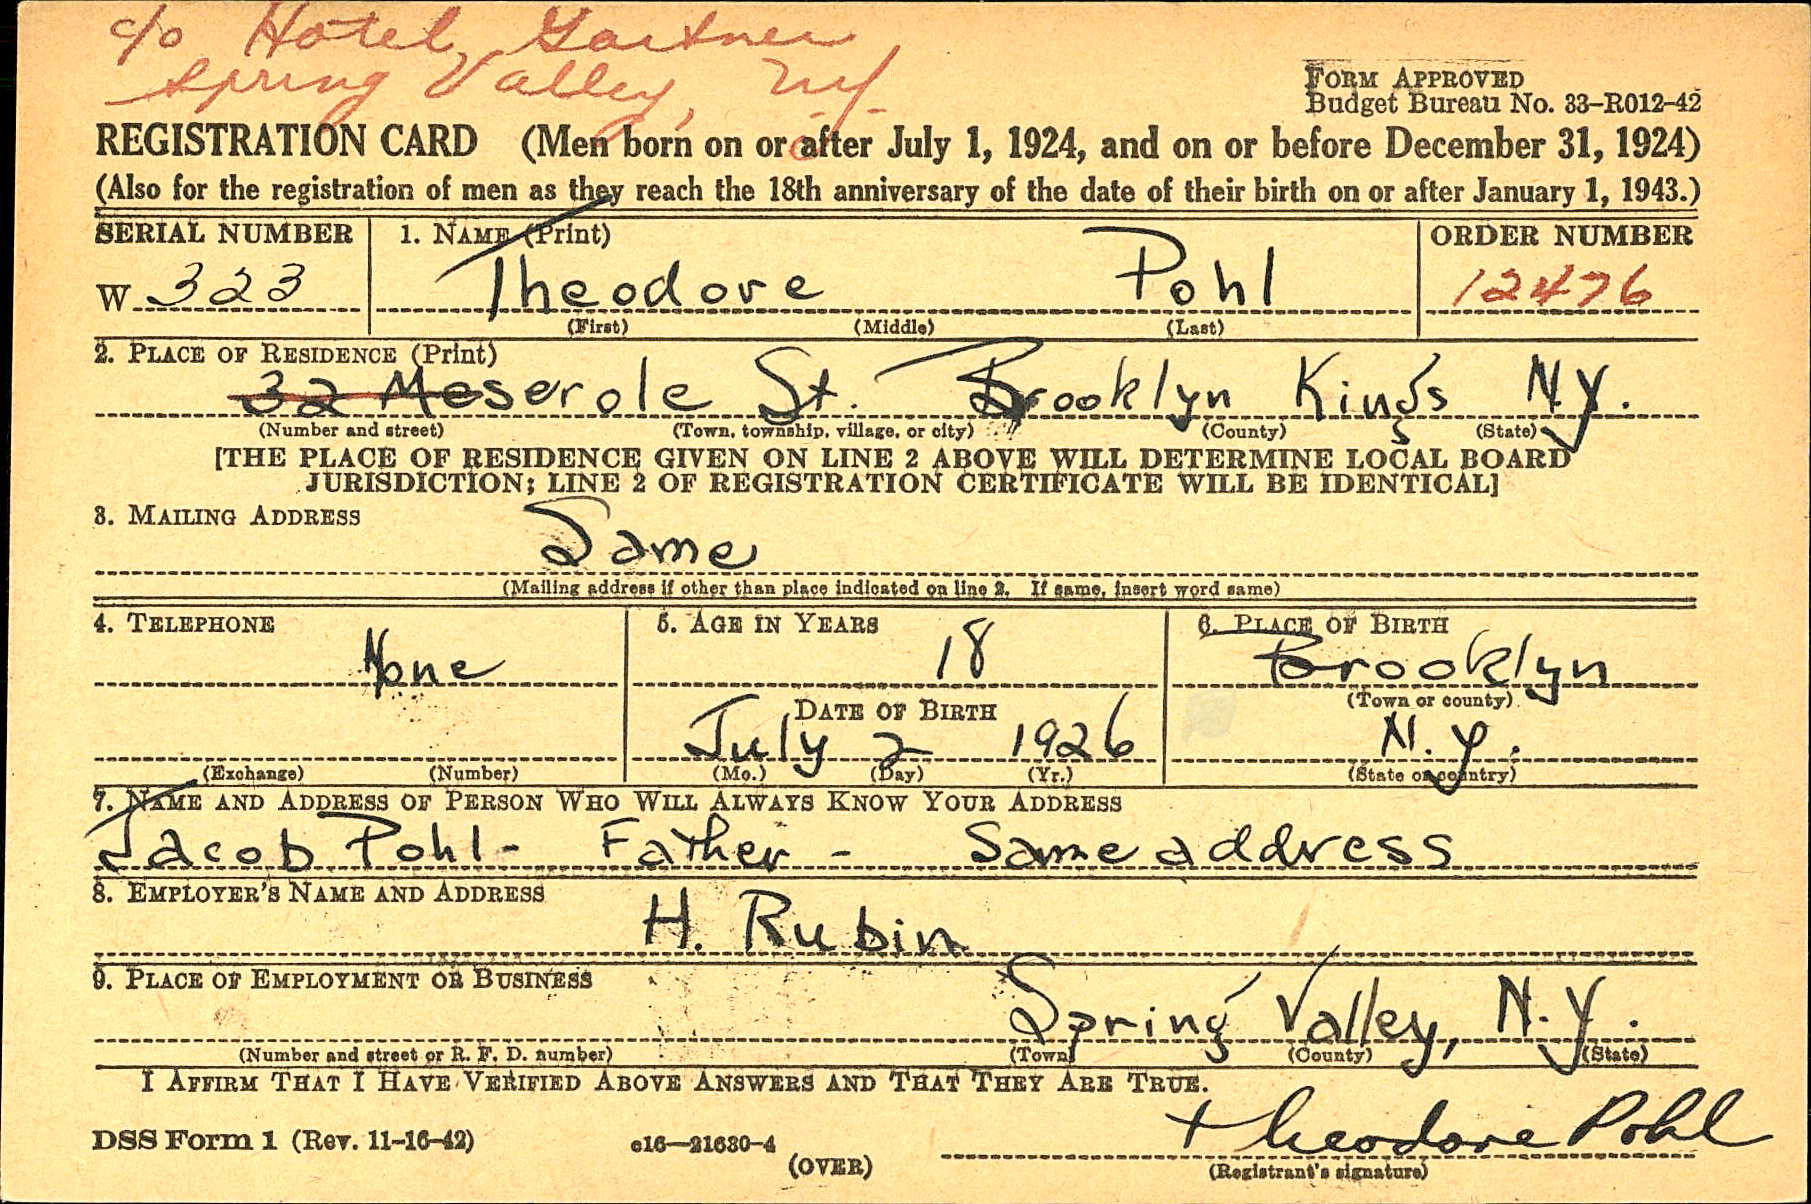 c/o Hotel Gartner
Spring Valley, NY.
FORM APPROVED
Budget Bureau No. 33-R012-42
REGISTRATION CARD (Men born on or after July 1, 1924, and on or before December 31, 1924)
(Also for the registration of men as they reach the 18th anniversary of the date of their birth on or after January 1, 1943.)
SERIAL NUMBER 1. NAME (Print) ORDER NUMBER
W 323 Theodore Pohl 12476
(First) (Middle) (Last)
2. PLACE OF RESIDENCE (Print)
32 Meserole St. Brooklyn Kings N.Y.
(Number and street) (Town, township, village, or city) (County) (State)
[THE PLACE OF RESIDENCE GIVEN ON LINE 2 ABOVE WILL DETERMINE LOCAL BOARD
JURISDICTION; LINE 2 OF REGISTRATION CERTIFICATE WILL BE IDENTICAL]
3. MAILING ADDRESS
Same
(Mailing address if other than place indicated on line 2. If same, insert word same)
4. TELEPHONE 5. AGE IN YEARS 6. PLACE OF BIRTH
None 18 Brooklyn
(Town or county)
DATE OF BIRTH
July 2 1926 N.Y.
(Exchange) (Number) (Mo.) (Day) (Yr.) (State or country)
7. NAME AND ADDRESS OF PERSON WHO WILL ALWAYS KNOW YOUR ADDRESS
Jacob Pohl - Father - Same address
8. EMPLOYER'S NAME AND ADDRESS
H. Rubin
9. PLACE OF EMPLOYMENT OR BUSINESS
Spring Valley, N.Y.
(Number and street or R. F. D. number) (Town) (County) (State)
I AFFIRM THAT I HAVE VERIFIED ABOVE ANSWERS AND THAT THEY ARE TRUE.
Theodore Pohl
DSS Form 1 (Rev. 11-16-42) c16-21630-4
(OVER) (Registrant's signature)